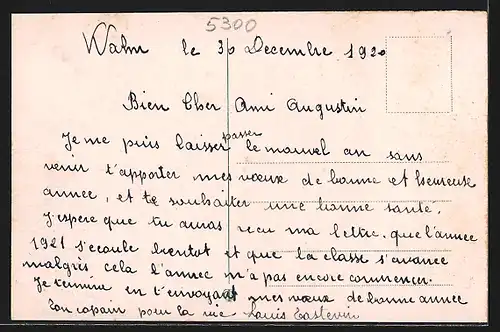 5300
Walm le 30 Decembre 1920
Bien Cher Ami Augustin
Je me puis laisser passer le nouvel an sans
venir t'apporter mes vœux de bonne et heureuse
annee, et te souhaiter une bonne santé.
J'espere que tu auras recu ma lettre. que l'année
1921 s'ecoule bientot et que la classe s'avance
malgrès cela l'annee n'a pas encore commencer.
Je termine en t'envoyant mes vœux de bonne annee
Ton copain pour la vie Louis